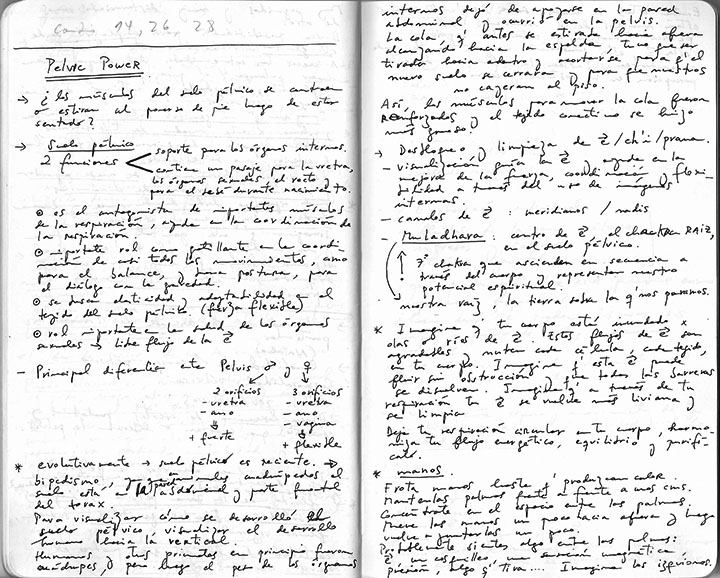 14, 26 28
Pelvic Power.
→ ¿los músculos del suelo pélvico se contraen
o estiran al ponerse de pie luego de estar
sentado?
→ Suelo pélvico
2 funciones
soporte para los órganos internos.
contiene un pasaje para la uretra,
los órganos sexuales, el recto
para el bebé durante nacimiento.
⊙ es el antagonista de importantes músculos
de la respiración, ayuda en la coordinación de
la respiración.
⊙ importante rol como gatillante en la coordi-
nación de casi todos los movimientos, como
para el balance, y buena postura, para
el diálogo con la gravedad.
⊙ se desea elasticidad y adaptabilidad en el
tejido del suelo pélvico. (fuerza flexible)
⊙ rol importante en la salud de los órganos
sexuales → libre flujo de la Z
- Principal diferencia ente Pelvis ♂ y ♀
2 orificios
- uretra
- ano
+ fuerte
3 orificios
- uretra
- ano
- vagina
+ flexible
* evolutivamente → suelo pélvico es reciente. →
bipedismo, cuadrúpedos el
suelo esta en la abdominal y parte frontal
del torax.
Para visualizar cómo se desarrolló el
suelo pélvico, visualizar el desarrollo
humano hacia la vertical.
Humanos y otros primates en principio fueron
cuadrúpes, y pero luego el peso de los órganos
internos dejó de apoyarse en la pared
abdominal y ocurrió en la pelvis.
La cola, q' antes se estiraba hacia afuera
alcanzando hacia la espalda, tuvo que ser
tirada hacia adentro y acortarse, para q' el
nuevo suelo se cerrara y para que nuestros
no cayeran al piso.
Así, los músculos para mover la cola fueron
reforzados y el tejido conectivo se hizo
más grueso.
→ Desbloqueo y limpieza de Z / ch'i / prana.
- visualización guía la Z y ayuda en la
mejora de la fuerza, coordinación y flexi-
bilidad a través del uso de imágenes
internas.
- canales de Z : meridianos / nadis
- Muladhara : centro de Z, el chakra RAIZ,
en el suelo pélvico.
7 chakra que ascienden en secuencia a
través del cuerpo y representan nuestro
potencial espiritual.
nuestra raíz, la tierra sobre la q' nos paramos.
* Imagine q' tu cuerpo está inundado x
olas o ríos de Z. Estos flujos de Z son
agradables y nutren cada célula, cada tejido,
en tu cuerpo. Imagine q' esta Z puede
fluir sin obstrucción, que todas las barreras
se disuelven. Imagine q' a través de tu
respiración tu Z se vuelve más liviana y
se limpia
Deja tu respiración circular en tu cuerpo, harmo-
niza tu flujo energético, equilibrio y purifí-
calo.
* manos.
Frota manos hasta q' produzcan calor.
Mantenlas palmas frente a frente a unos cms.
Concéntrate en el espacio entre las palmas.
Mueve las manos un poco hacia afuera y luego
vuelve a juntarlas un poco.
Posiblemente sientes algo entre las palmas:
Z un cosquilleo, una sensación magnética,
presión, algo q' tira.... Imagina los